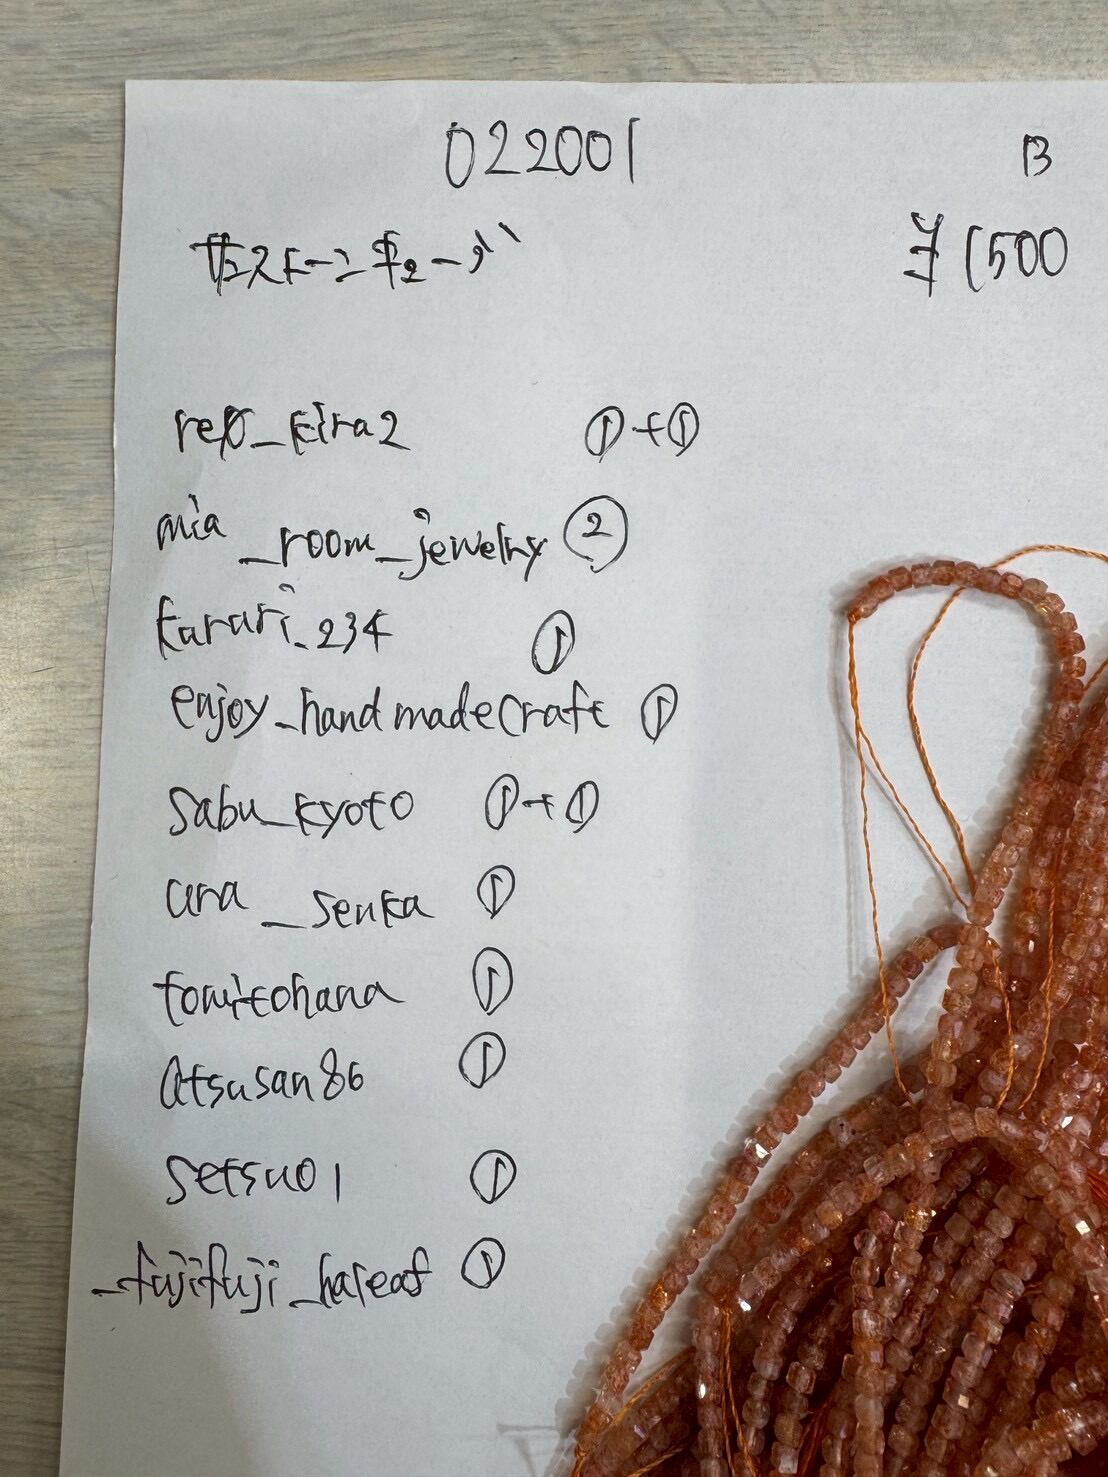 022001
B
サンストーンキューブ
¥1500
rep_kira2 ①+①
mia_room_jewelry ②
karari_234 ①
enjoy_handmadecraft ①
sabu_kyoto ①+①
ura_senka ①
tomitohana ①
atsusan86 ①
setsu01 ①
_fujifuji_haleaf ①